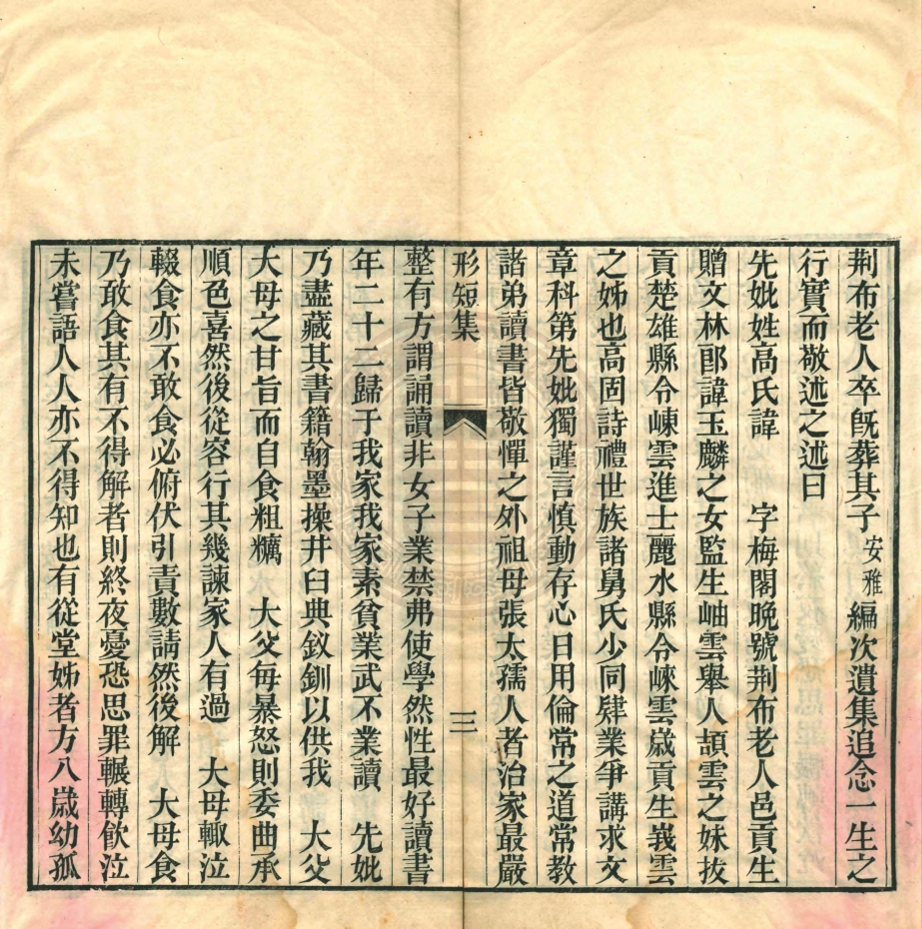 荆布老人卒既葬其子安雅編次遺集追念一生之
行實而敬述之述曰
先妣姓高氏諱　字梅閣晚號荆布老人邑貢生
贈文林郎諱玉麟之女監生岫雲舉人頡雲之妹拔
貢楚雄縣令崠雲進士麗水縣令崍雲歲貢生峩雲
之姊也高固詩禮世族諸舅氏少同肄業爭講求文
章科第先妣獨謹言慎動存心日用倫常之道常教
諸弟讀書皆敬憚之外祖母張太孺人者治家最嚴
形短集　三
整有方謂誦讀非女子業禁弗使學然性最好讀書
年二十二歸于我家我家素貧業武不業讀　先妣
乃盡藏其書籍翰墨操井臼典釵釧以供我　大父
大母之甘旨而自食粗糲　大父每暴怒則委曲承
順色喜然後從容行其幾諫家人有過　大母輙泣
輟食亦不敢食必俯伏引責數請然後解　大母食
乃敢食其有不得解者則終夜憂恐思罪輾轉飲泣
未嘗語人人亦不得知也有從堂姊者方八歲幼孤